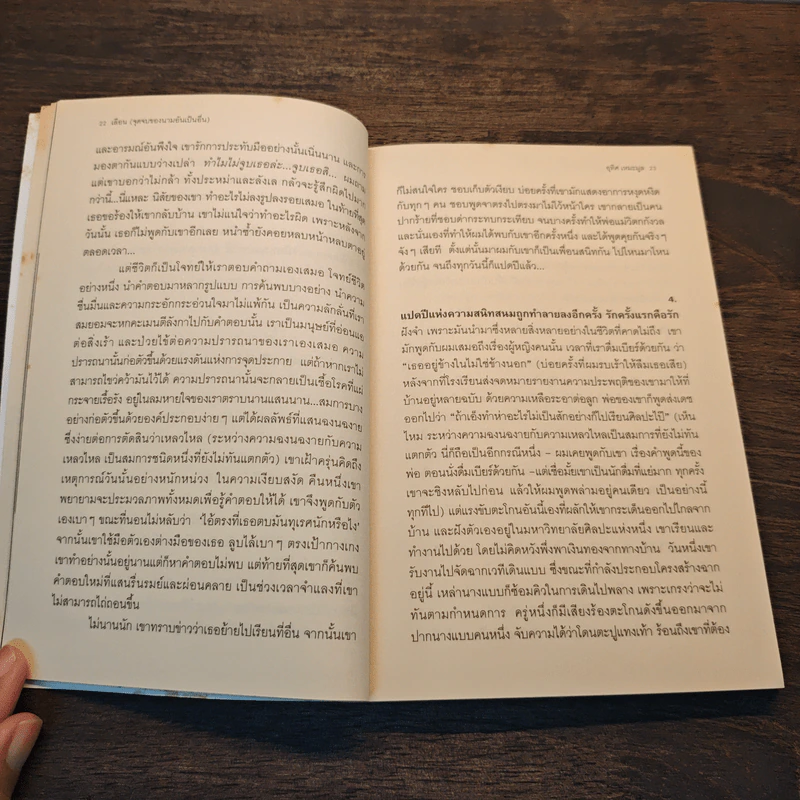 22 เดือน (จุดจบของนามอันเป็นอื่น)
และอารมณ์อันพึงใจ เขารักการประทับมืออย่างนั้นเนิ่นนาน และการ
มองตากันแบบว่างเปล่า ทำไมไม่จูบเธอล่ะ...จูบเธอสิ... ผมถาม
แต่เขาบอกว่าไม่กล้า ทั้งประหม่าและลังเล กลัวจะรู้สึกผิดไปมาก
กว่านี้...นี่แหละ นิสัยของเขา ทำอะไรไม่ลงรูปลงรอยเสมอ ในท้ายที่สุด
เธอขอร้องให้เขากลับบ้าน เขาไม่แน่ใจว่าทำอะไรผิด เพราะหลังจาก
วันนั้น เธอก็ไม่พูดกับเขาอีกเลย หนำซ้ำยังคอยหลบหน้าหลบตาอยู่
ตลอดเวลา...
แต่ชีวิตก็เป็นโจทย์ให้เราตอบคำถามเองเสมอ โจทย์ชีวิต
อย่างหนึ่ง นำคำตอบมาหลากรูปแบบ บางอย่าง นำความ
ชื่นมื่นและความกระอักกระอ่วนใจมาไม่แพ้กัน เป็นความลักลั่นที่เรา
สมยอมจะหกคะเมนตีลังกาไปกับคำตอบนั้น เราเป็นมนุษย์ที่อ่อนแอ
ต่อสิ่งเร้า และป่วยไข้ต่อความปรารถนาของเราเองเสมอ ความ
ปรารถนานั้นก่อตัวขึ้นด้วยแรงดันแห่งการจุดประกาย แต่ถ้าหากเราไม่
สามารถไขว่คว้ามันไว้ได้ ความปรารถนานั้นจะกลายเป็นเชื้อโรคที่แผ่
กระจายเรื้อรัง อยู่ในลมหายใจของเราตราบนานแสนนาน...สมการบาง
อย่างก่อตัวขึ้นด้วยองค์ประกอบง่ายๆ แต่ได้ผลลัพธ์ที่แสนฉงนฉงาย
ซึ่งง่ายต่อการตัดสินว่าเหลวไหล (ระหว่างความฉงนฉงายกับความ
เหลวไหล เป็นสมการชนิดหนึ่งที่ยังไม่ทันแตกตัว) เขาเฝ้าครุ่นคิดถึง
เหตุการณ์วันนั้นอย่างหนักหน่วง ในความเงียบสงัด คืนหนึ่งเขา
พยายามจะประมวลภาพทั้งหมดเพื่อรู้คำตอบให้ได้ เขาจึงพูดกับตัว
เองเบาๆ ขณะที่นอนไม่หลับว่า 'ไอ้ตรงที่เธอตบมันทุเรศนักหรือไง'
จากนั้นเขาใช้มือตัวเองต่างมือของเธอ ลูบไล้เบาๆ ตรงเป้ากางเกง
เขาทำอย่างนั้นอยู่นานแต่ก็หาคำตอบไม่พบ แต่ท้ายที่สุดเขาก็ค้นพบ
คำตอบใหม่ที่แสนรื่นรมย์และผ่อนคลาย เป็นช่วงเวลาจำแลงที่เขา
ไม่สามารถไถ่ถอนขึ้น
ไม่นานนัก เขาทราบข่าวว่าเธอย้ายไปเรียนที่อื่น จากนั้นเขา
อุทิศ เหมะมูล 23
ก็ไม่สนใจใคร ชอบเก็บตัวเงียบ บ่อยครั้งที่เขามักแสดงอาการหงุดหงิด
กับทุกๆ คน ชอบพูดจาตรงไปตรงมาไม่ไว้หน้าใคร เขากลายเป็นคน
ปากร้ายที่ชอบด่ากระทบกระเทียบ จนบางครั้งทำให้พ่อแม่วิตกกังวล
และนั่นเองที่ทำให้ผมได้พบกับเขาอีกครั้งหนึ่ง และได้พูดคุยกันจริงๆ
จังๆ เสียที ตั้งแต่นั้นมาผมกับเขาก็เป็นเพื่อนสนิทกัน ไปไหนมาไหน
ด้วยกัน จนถึงทุกวันนี้ก็แปดปีแล้ว...
4.
แปดปีแห่งความสนิทสนมถูกทำลายลงอีกครั้ง รักครั้งแรกคือรัก
ฝังจำ เพราะมันนำมาซึ่งหลายสิ่งหลายอย่างในชีวิตที่คาดไม่ถึง เขา
มักพูดกับผมเสมอถึงเรื่องผู้หญิงคนนั้น เวลาที่เราดื่มเบียร์ด้วยกัน ว่า
"เธออยู่ข้างในไม่ใช่ข้างนอก" (บ่อยครั้งที่ผมรบเร้าให้ลืมเธอเสีย)
หลังจากที่โรงเรียนส่งจดหมายรายงานความประพฤติของเขามาให้ที่
บ้านอยู่หลายฉบับ ด้วยความเหลือระอาต่อลูก พ่อของเขาก็พูดส่งเดช
ออกไปว่า "ถ้าเอ็งทำห่าอะไรไม่เป็นสักอย่างก็ไปเรียนศิลปะไป๊" (เห็น
ไหม ระหว่างความฉงนฉงายกับความเหลวไหลเป็นสมการที่ยังไม่ทัน
แตกตัว นี่ก็ถือเป็นอีกกรณีหนึ่ง - ผมเคยพูดกับเขา เรื่องคำพูดนี้ของ
พ่อ ตอนนั่งดื่มเบียร์ด้วยกัน -แต่เชื่อมั้ยเขาเป็นนักดื่มที่แย่มาก ทุกครั้ง
เขาจะชิงหลับไปก่อน แล้วให้ผมพูดพล่ามอยู่คนเดียว เป็นอย่างนี้
ทุกทีไป) แต่แรงขับตะโกนอันนี้เองที่ผลักให้เขากระเด็นออกไปไกลจาก
บ้าน และฝังตัวเองอยู่ในมหาวิทยาลัยศิลปะแห่งหนึ่ง เขาเรียนและ
ทำงานไปด้วย โดยไม่คิดหวังพึ่งพาเงินทองจากทางบ้าน วันหนึ่งเขา
รับงานไปจัดฉากเวทีเดินแบบ ซึ่งขณะที่กำลังประกอบโครงสร้างฉาก
อยู่นี้ เหล่านางแบบก็ซ้อมคิวในการเดินไปพลาง เพราะเกรงว่าจะไม่
ทันตามกำหนดการ ครู่หนึ่งก็มีเสียงร้องตะโกนดังขึ้นออกมาจาก
ปากนางแบบคนหนึ่ง จับความได้ว่าโดนตะปูแทงเท้า ร้อนถึงเขาที่ต้อง